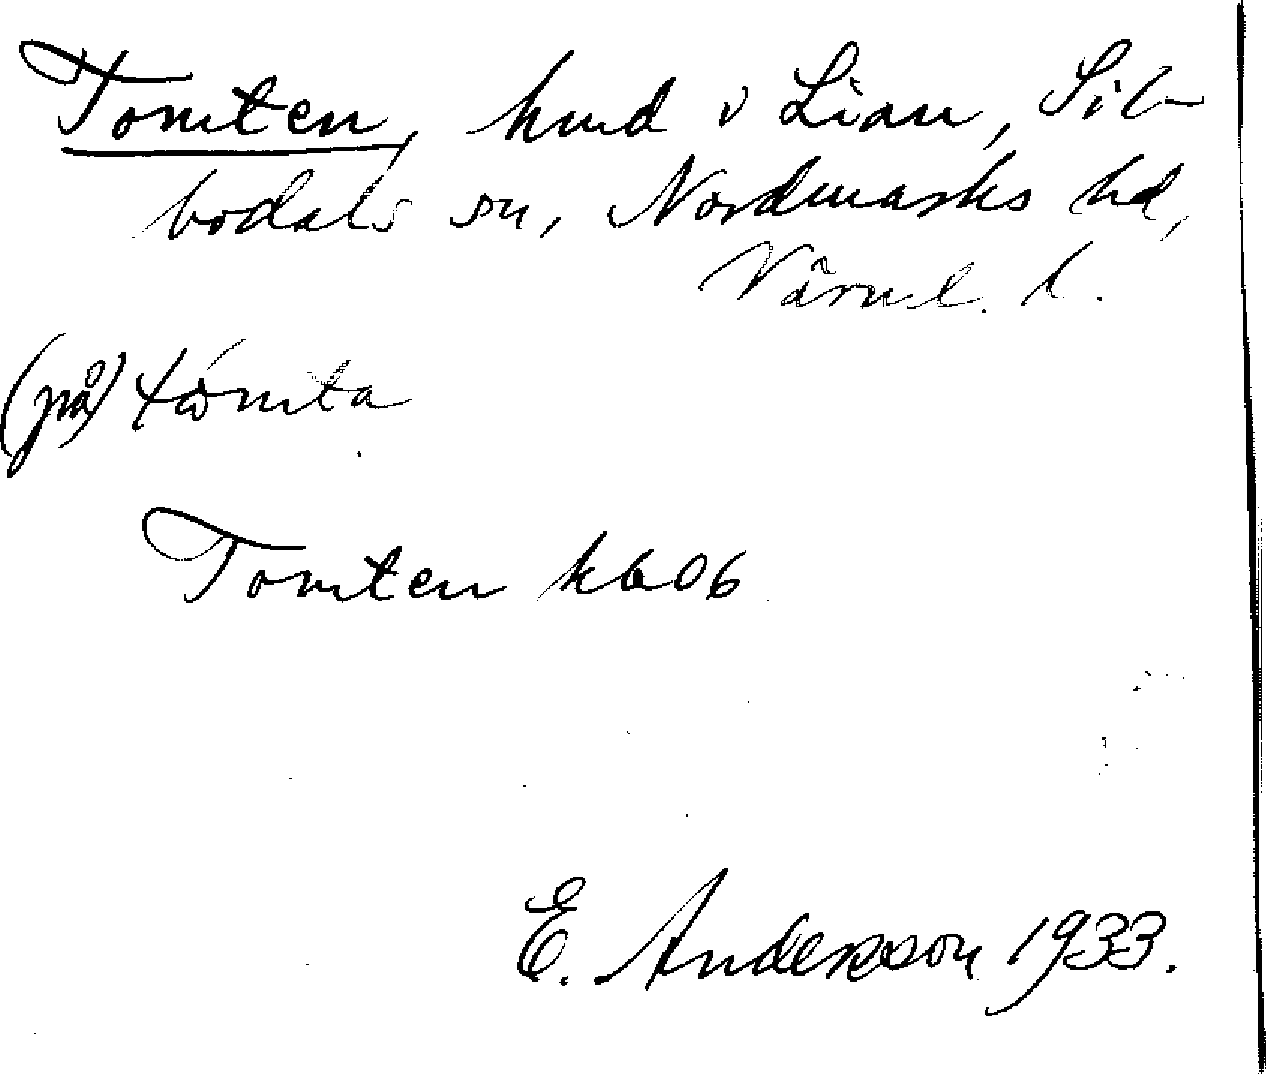 Tomten, hmd v Lian, Sil-
bodals sn, Nordmarks hd,
Värml. l.
(på) tómta
Tomten k606
E. Andersson 1933.